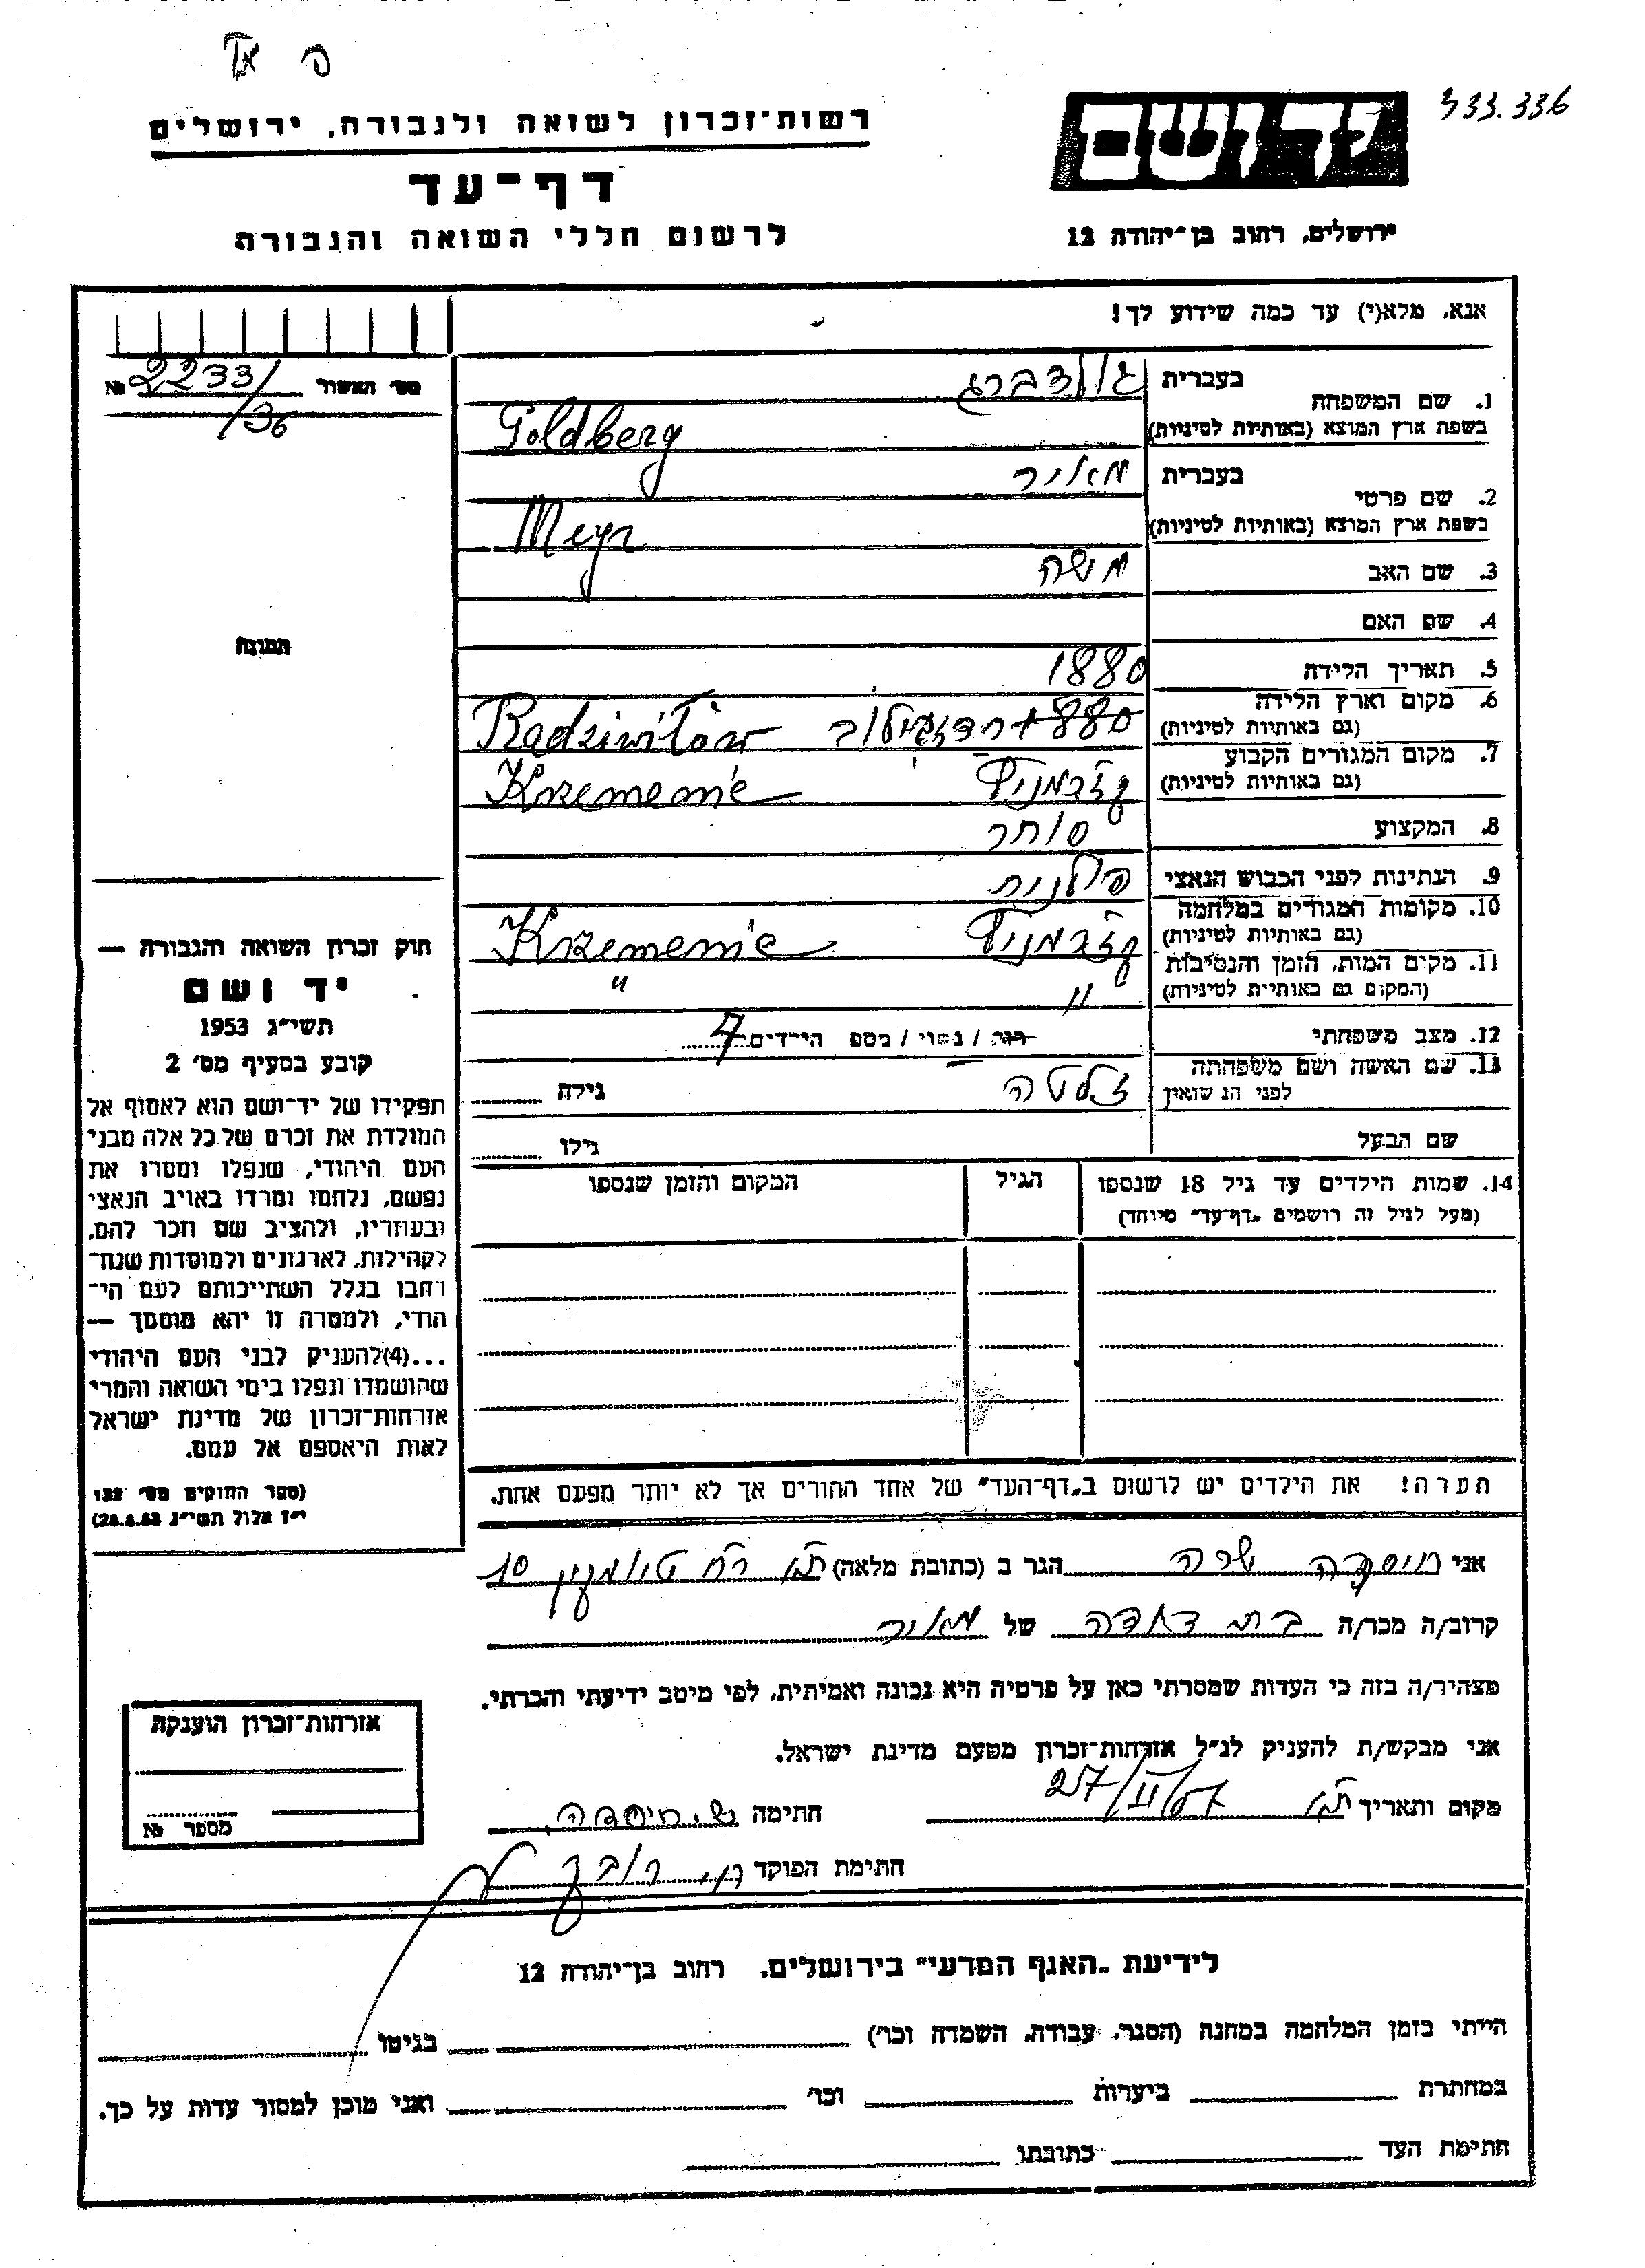 333.336
יד ושם
רשות־זכרון לשואה ולגבורה, ירושלים
דף־עד
לרשום חללי השואה והגבורה
ירושלים, רחוב בן־יהודה 12
אנא, מלא(י) עד כמה שידוע לך!
מס׳ האשור № 2233/
/36
תמונה
בעברית גולדברג
1. שם המשפחה
בשפת ארץ המוצא (באותיות לטיניות) Goldberg
בעברית מאיר
2. שם פרטי
בשפת ארץ המוצא (באותיות לטיניות) Meyr
3. שם האב משה
4. שם האם
5. תאריך הלידה 1880
6. מקום וארץ הלידה
(גם באותיות לטיניות) רדזבילוב Radziwiłłów
7. מקום המגורים הקבוע
(גם באותיות לטיניות) Krzemenie
8. המקצוע סוחר
9. הנתינות לפני הכבוש הנאצי פולנית
10. מקומות המגורים במלחמה
(גם באותיות לטיניות) Krzemenie
11. מקום המות, הזמן והנסיבות
(המקום גם באותיות לטיניות) " "
12. מצב משפחתי רווק / נשוי / מספ הילדים 4
13. שם האשה ושם משפחתה
לפני הנישואין זלטה גילה
שם הבעל גילו
14. שמות הילדים עד גיל 18 שנספו הגיל המקום והזמן שנספו
(מעל לגיל זה רושמים „דף־עד” מיוחד)
חוק זכרון השואה והגבורה —
יד ושם
תשי״ג 1953
קובע בסעיף מס׳ 2
תפקידו של יד־ושם הוא לאסוף אל
המולדת את זכרם של כל אלה מבני
העם היהודי, שנפלו ומסרו את
נפשם, נלחמו ומרדו באויב הנאצי
ובעוזריו, ולהציב שם וזכר להם,
לקהילות, לארגונים ולמוסדות שנח־
רבו בגלל השתייכותם לעם הי־
הודי, ולמטרה זו יהא מוסמך —
...(4)להעניק לבני העם היהודי
שהושמדו ונפלו בימי השואה והמרי
אזרחות־זכרון של מדינת ישראל
לאות היאספם אל עמם.
(ספר החוקים מס׳ 132
י״ז אלול תשי״ג 28.8.53)
הערה! את הילדים יש לרשום ב„דף־העד” של אחד ההורים אך לא יותר מפעם אחת.
אני שרה הגר ב (כתובת מלאה) 10
קרוב/ה מכר/ה בת דודה של מאיר
מצהיר/ה בזה כי העדות שמסרתי כאן על פרטיה היא נכונה ואמיתית, לפי מיטב ידיעתי והכרתי.
אני מבקש/ת להעניק לנ״ל אזרחות־זכרון מטעם מדינת ישראל.
מקום ותאריך חתימה
חתימת הפוקד
אזרחות־זכרון הוענקה
מספר №
לידיעת „האגף המדעי” בירושלים, רחוב בן־יהודה 12
הייתי בזמן המלחמה במחנה (הסגר, עבודה, השמדה וכו׳) בגיטו
במחתרת ביערות וכו׳ ואני מוכן למסור עדות על כך.
חתימת העד כתובתו